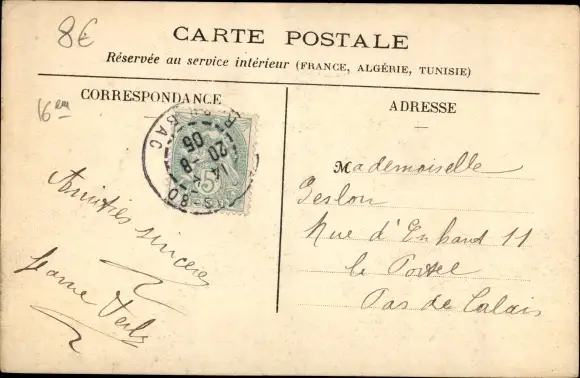 8€
CARTE POSTALE
Réservée au service intérieur (FRANCE, ALGÉRIE, TUNISIE)
CORRESPONDANCE
ADRESSE
16em
BAC
20 - 8
05
5
Mademoiselle
Geslon
Rue d'En haut 11
le Portel
Pas de Calais
Amitiés sincères
Jeanne